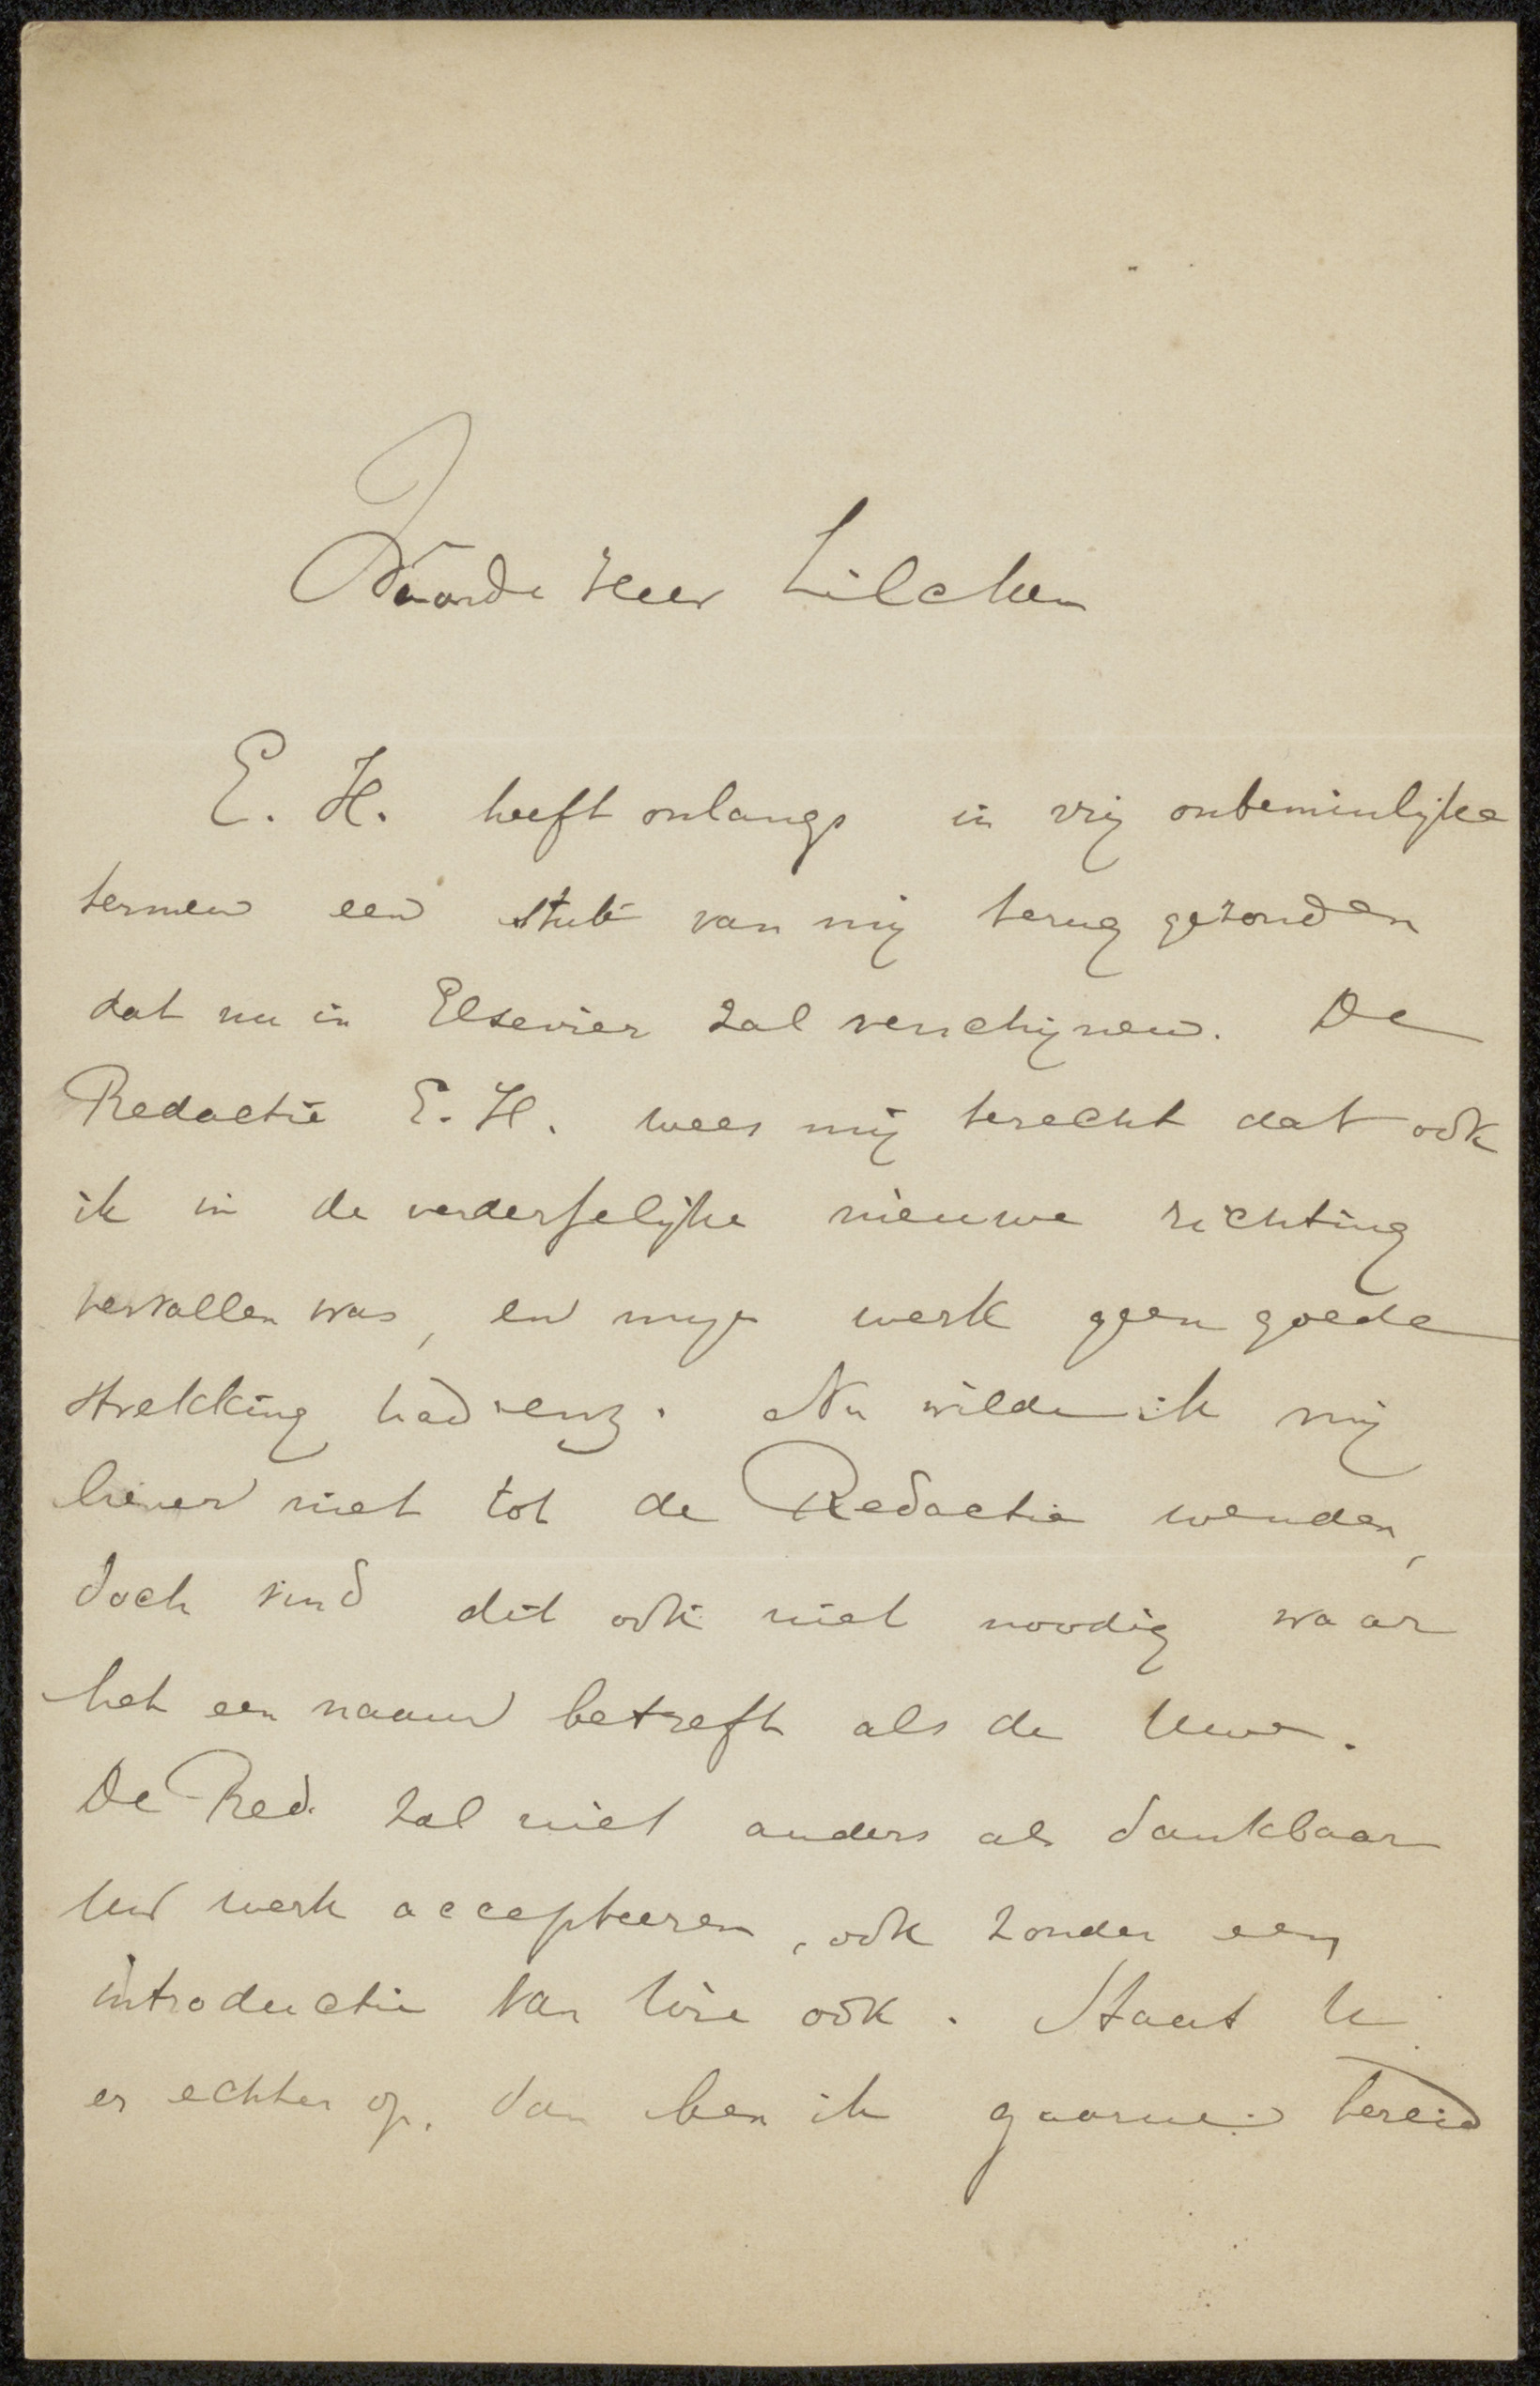 Waarde Heer Zilcken
E. H. heeft onlangs in vrij onbeminlijke
termen een stuk van mij terug gezonden
dat nu in Elsevier zal verschijnen. De
Redactie E. H. wees mij terecht dat ook
ik in de verderfelijke nieuwe richting
vervallen was, en mijn werk geen goede
strekking had enz. Nu wilde ik mij
liever niet tot de Redactie wenden,
doch vind dit ook niet noodig waar
het een naam betreft als de Uwe.
De Red. zal niet anders als dankbaar
Uw werk accepteeren, ook zonder een
introductie van wie ook. Staat U
er echter op, dan ben ik gaarne bereid